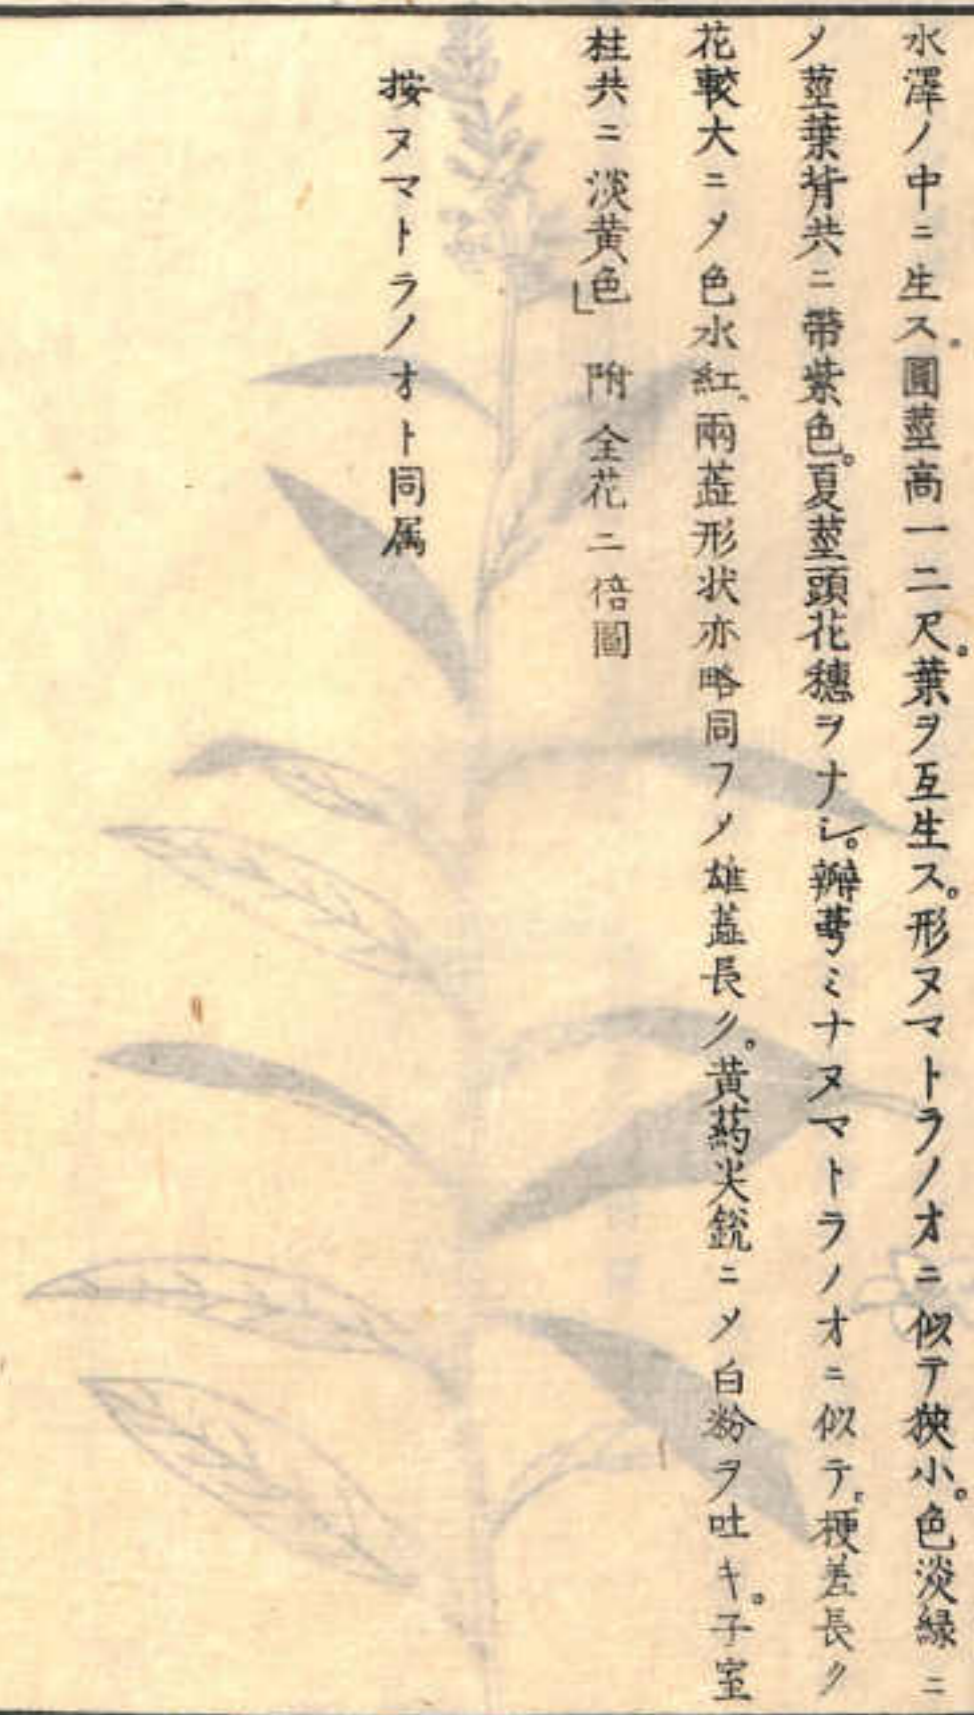 水澤ノ中ニ生ス。圓莖高一二尺。葉ヲ互生ス。形ヌマトラノオニ似テ狹小。色淡緑ニ
ノ莖葉背共ニ帶紫色。夏莖頭花穗ヲナシ。瓣萼ミナヌマトラノオニ似テ、梗差長ク
花較大ニメ色水紅、兩蕋形状亦略同フメ雄蕋長ク。黄葯尖鋭ニメ白粉ヲ吐キ。子室
柱共ニ淡黄色」 附全花二倍圖
按ヌマトラノオト同属